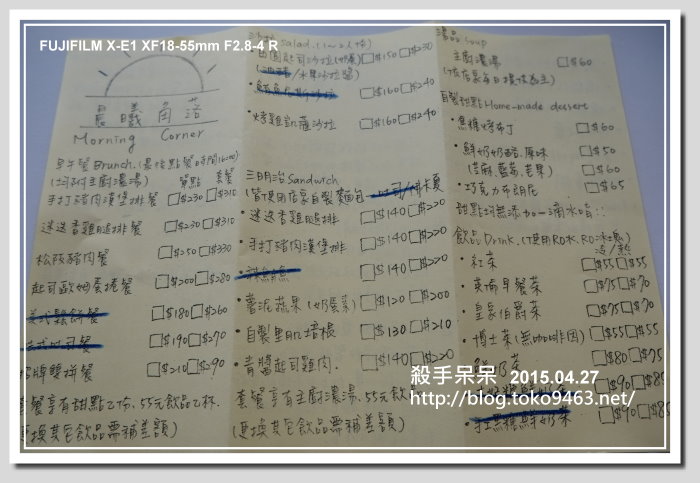 FUJIFILM X-E1 XF18-55mm F2.8-4 R
晨曦角落
Morning Corner
早午餐Brunch.(最後點餐時間16:00)
(均附主廚濃湯) 單點 套餐
手打豬肉漢堡排餐 □$230 □$310
迷迭香雞腿排餐 □$230 □$310
松阪豬肉餐 □$250 □$330
起司歐姆蛋捲餐 □$200 □$280
美式鬆餅餐 □$180 □$260
□$190 □$270
招牌雙拼餐 □$210 □$290
套餐享有甜點乙份、55元飲品乙杯.
(更換其它飲品需補差額)
沙拉 Salad.(1~2人份)
田園起司沙拉(奶蛋) □$150 □$230
(油醋/水果沙拉醬)
□$160 □$240
烤雞凱薩沙拉 □$160 □$240
三明治 Sandwich
(皆使用店家自製麵包
•迷迭香雞腿排 □$140 □$220
•手打豬肉漢堡排 □$140 □$220
□$140 □$220
•薯泥蔬果(奶蛋素) □$120 □$200
•自製里肌培根 □$130 □$210
•青醬起司雞肉. □$140 □$220
套餐享有主廚濃湯、55元飲
(更換其它飲品需補差額)
湯品 Soup
主廚濃湯 □$60
(依店家每日提供為主)
自製甜點 Home-made dessert
•焦糖烤布丁 □$60
•鮮奶奶酪.原味 □$50
(芒果) □$60
•巧克力布朗尼 □$65
甜點均無添加一滴水唷::
飲品 Drink.(使用RO水、RO冰塊)
冷/熱
•紅茶 □$55 □$55
•英倫早餐茶 □$75 □$70
•皇家伯爵茶 □$75 □$70
•博士茶(無咖啡因) □$55 □$55
□$80 □$75
□$90 □$85
•手工黑糖鮮奶茶 □$90 □$85
殺手呆呆 2015.04.27
http://blog.toko9463.net/